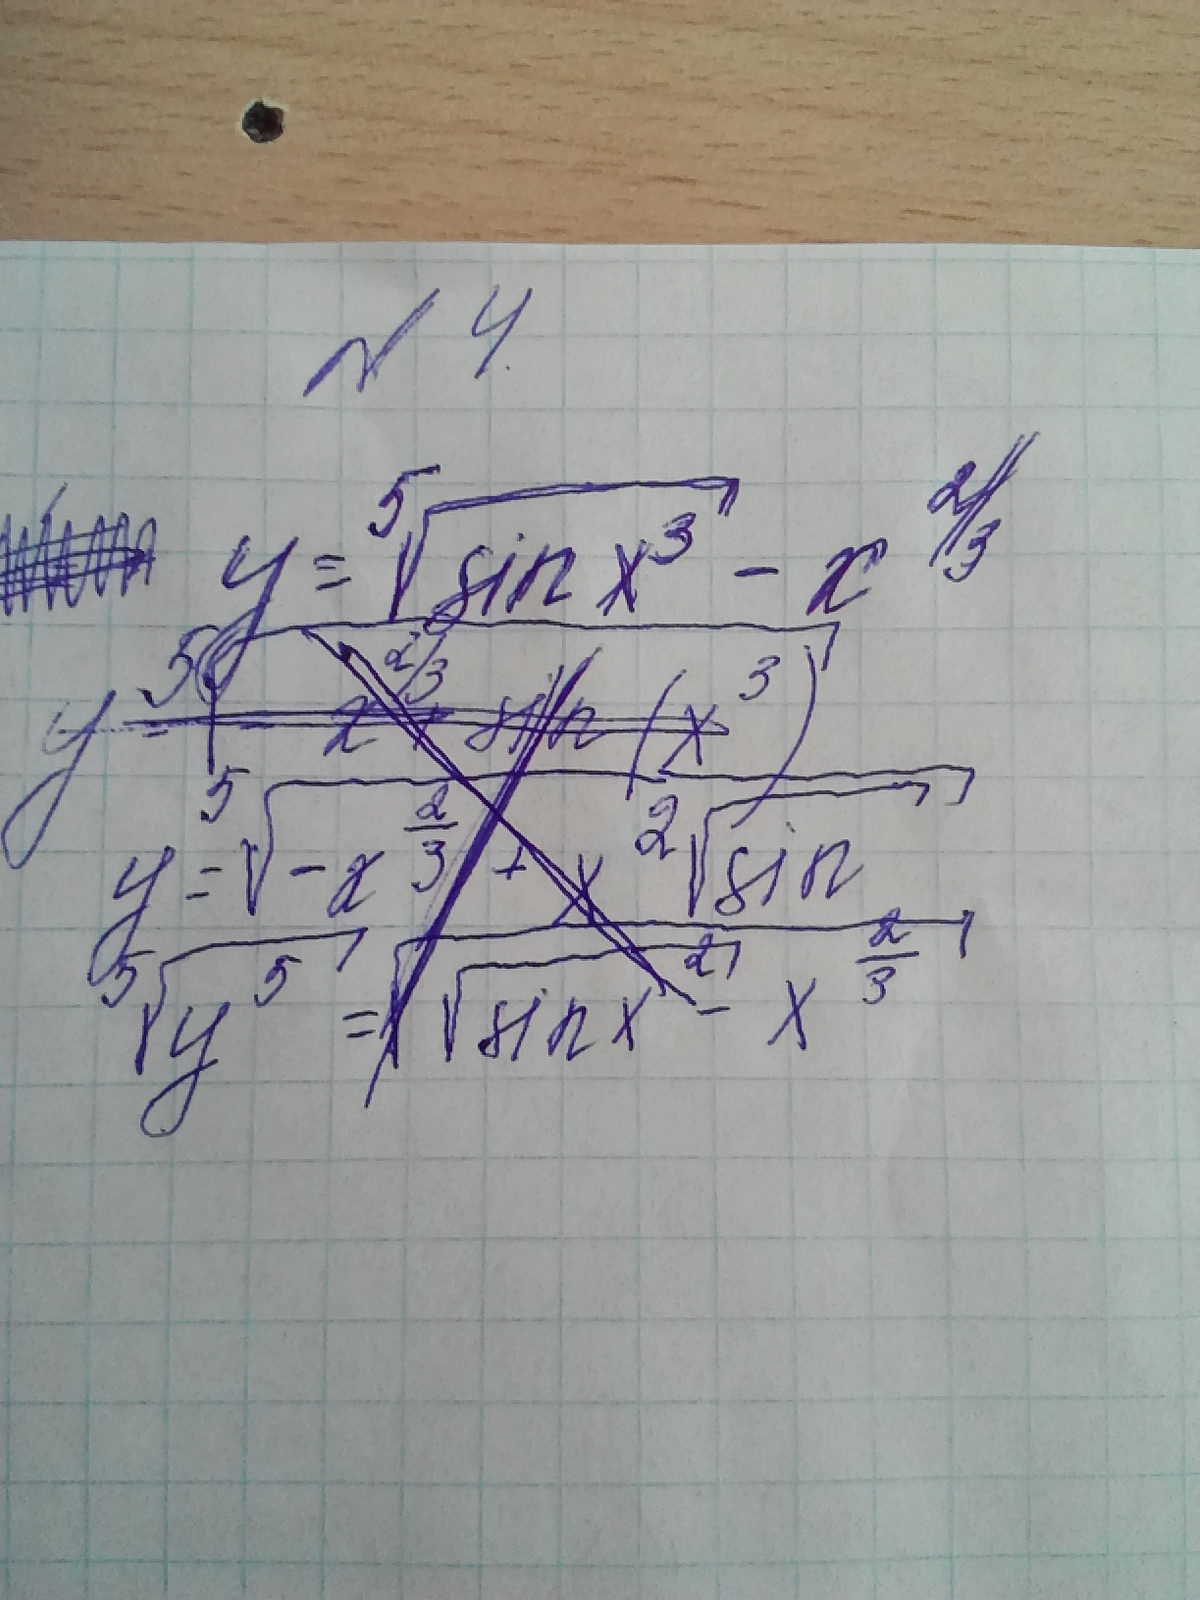 № 4.
y = ⁵√(sin x³) - x^(2/3)
y = ⁵√(x^(2/3) + sin (x³))
y = ⁵√(-x^(2/3) + x ²√(sin))
⁵√(y⁵) = √(√(sin x²) - x^(2/3))